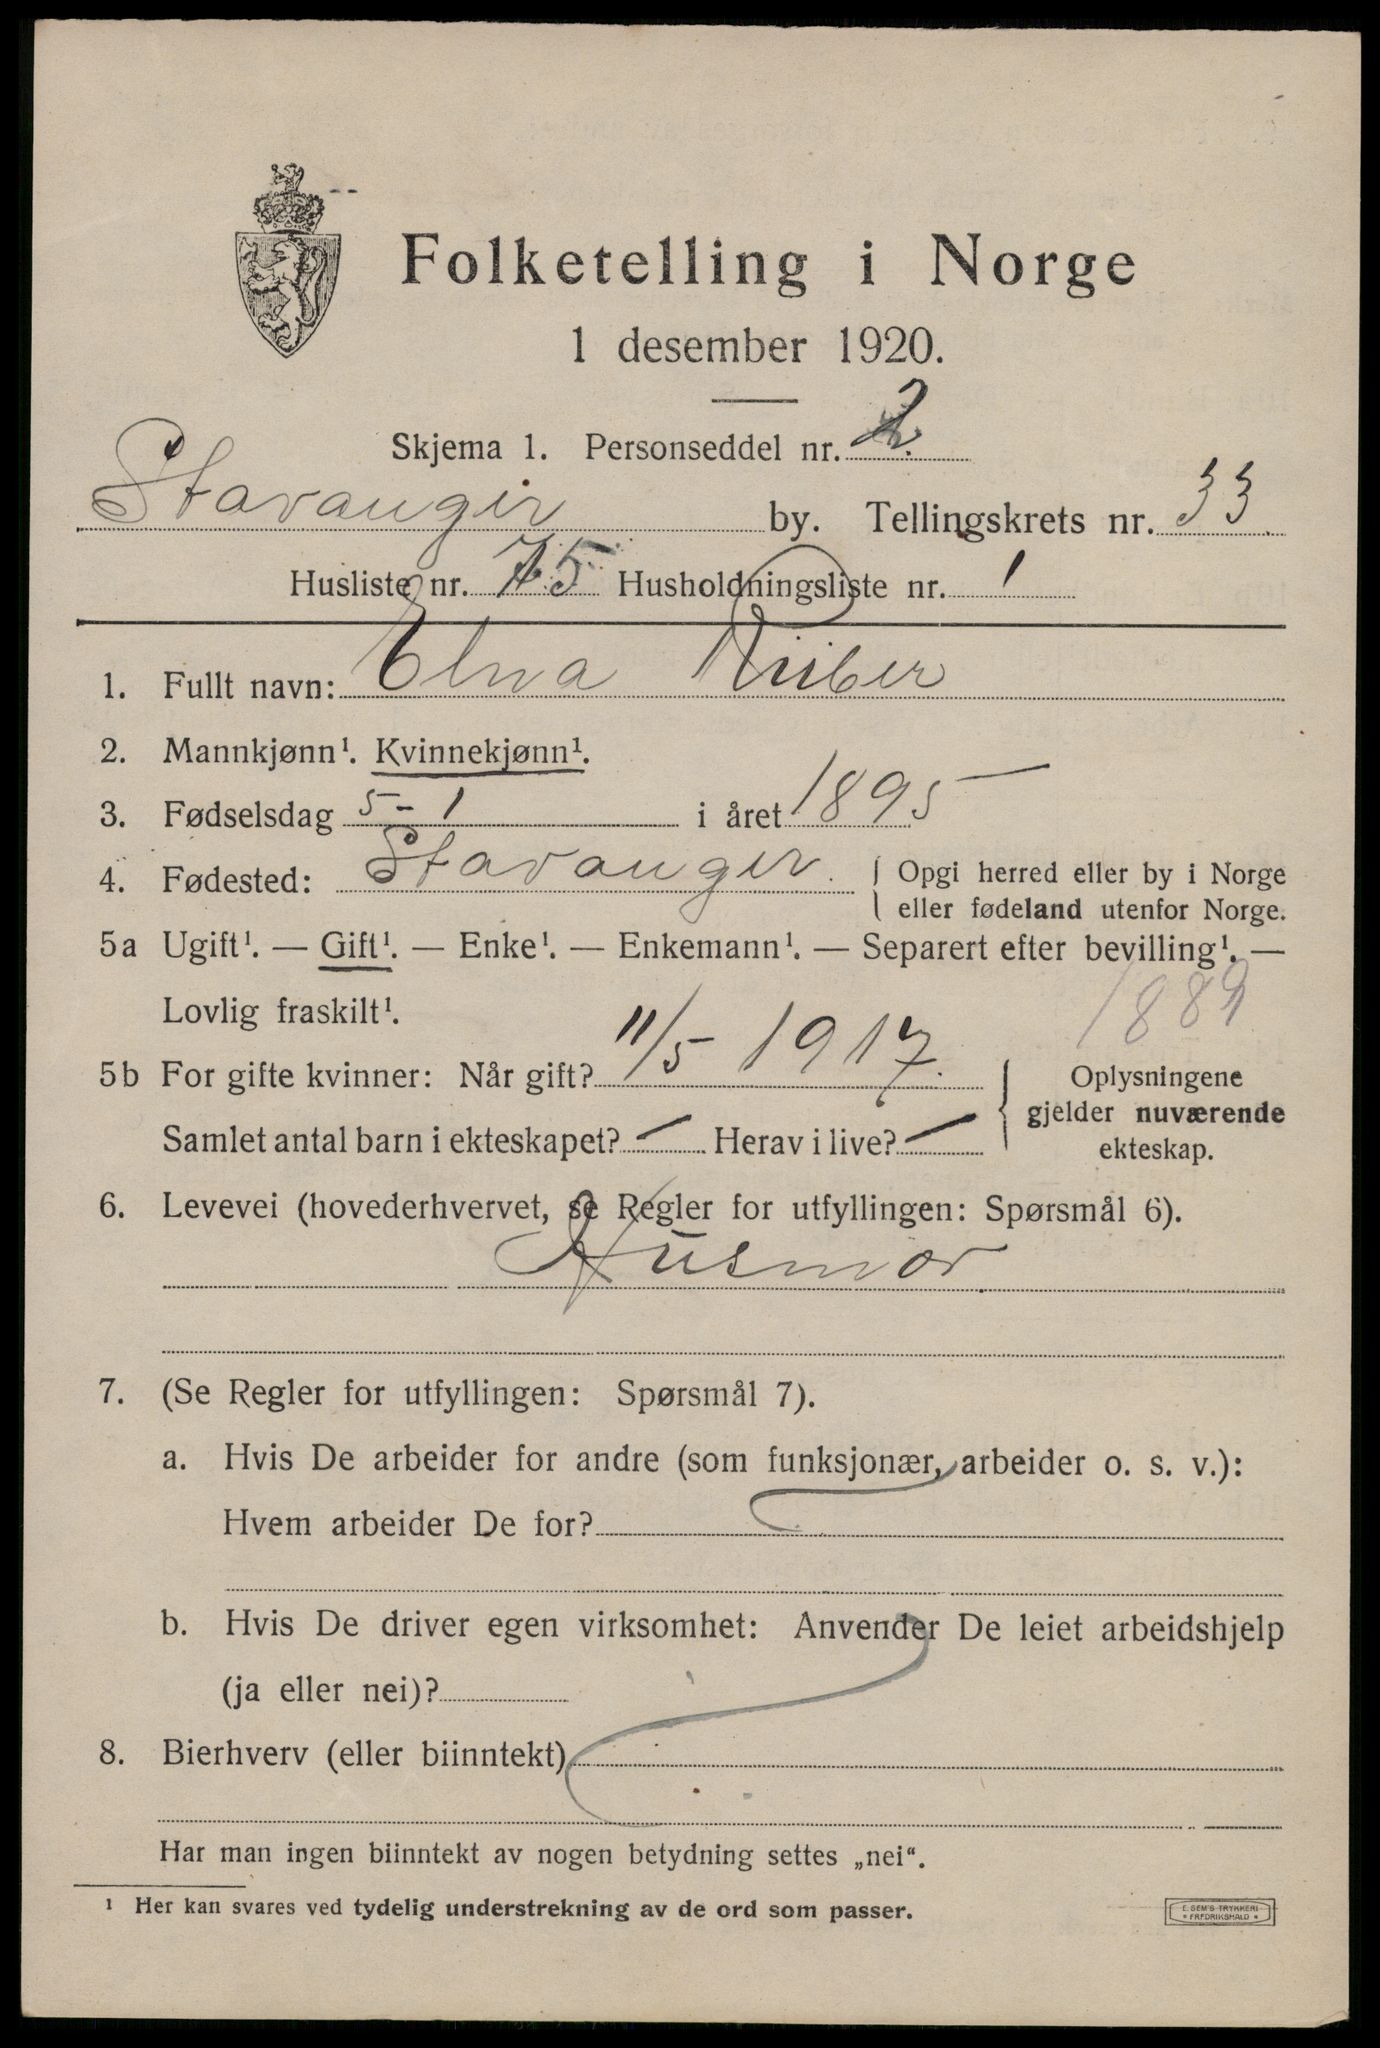 Folketelling i Norge
1 desember 1920.
Skjema 1. Personseddel nr. 2
Stavanger by. Tellingskrets nr. 33
Husliste nr. 75 Husholdningsliste nr. 1
1. Fullt navn: Elna
2. Mannkjønn¹. Kvinnekjønn¹.
3. Fødselsdag 5-1 i året 1895
4. Fødested: Stavanger. Opgi herred eller by i Norge
eller fødeland utenfor Norge.
5a Ugift¹. — Gift¹. — Enke¹. — Enkemann¹. — Separert efter bevilling¹. —
Lovlig fraskilt¹.
1889
5b For gifte kvinner: Når gift? 11/5 1917. Oplysningene
gjelder nuværende
ekteskap.
Samlet antal barn i ekteskapet? — Herav i live? —
6. Levevei (hovederhvervet, se Regler for utfyllingen: Spørsmål 6).
Husmor
7. (Se Regler for utfyllingen: Spørsmål 7).
a. Hvis De arbeider for andre (som funksjonær, arbeider o. s. v.):
Hvem arbeider De for?
b. Hvis De driver egen virksomhet: Anvender De leiet arbeidshjelp
(ja eller nei)?
8. Bierhverv (eller biinntekt)
Har man ingen biinntekt av nogen betydning settes „nei“.
¹ Her kan svares ved tydelig understrekning av de ord som passer.
E. SEM'S TRYKKERI
FREDRIKSHALD